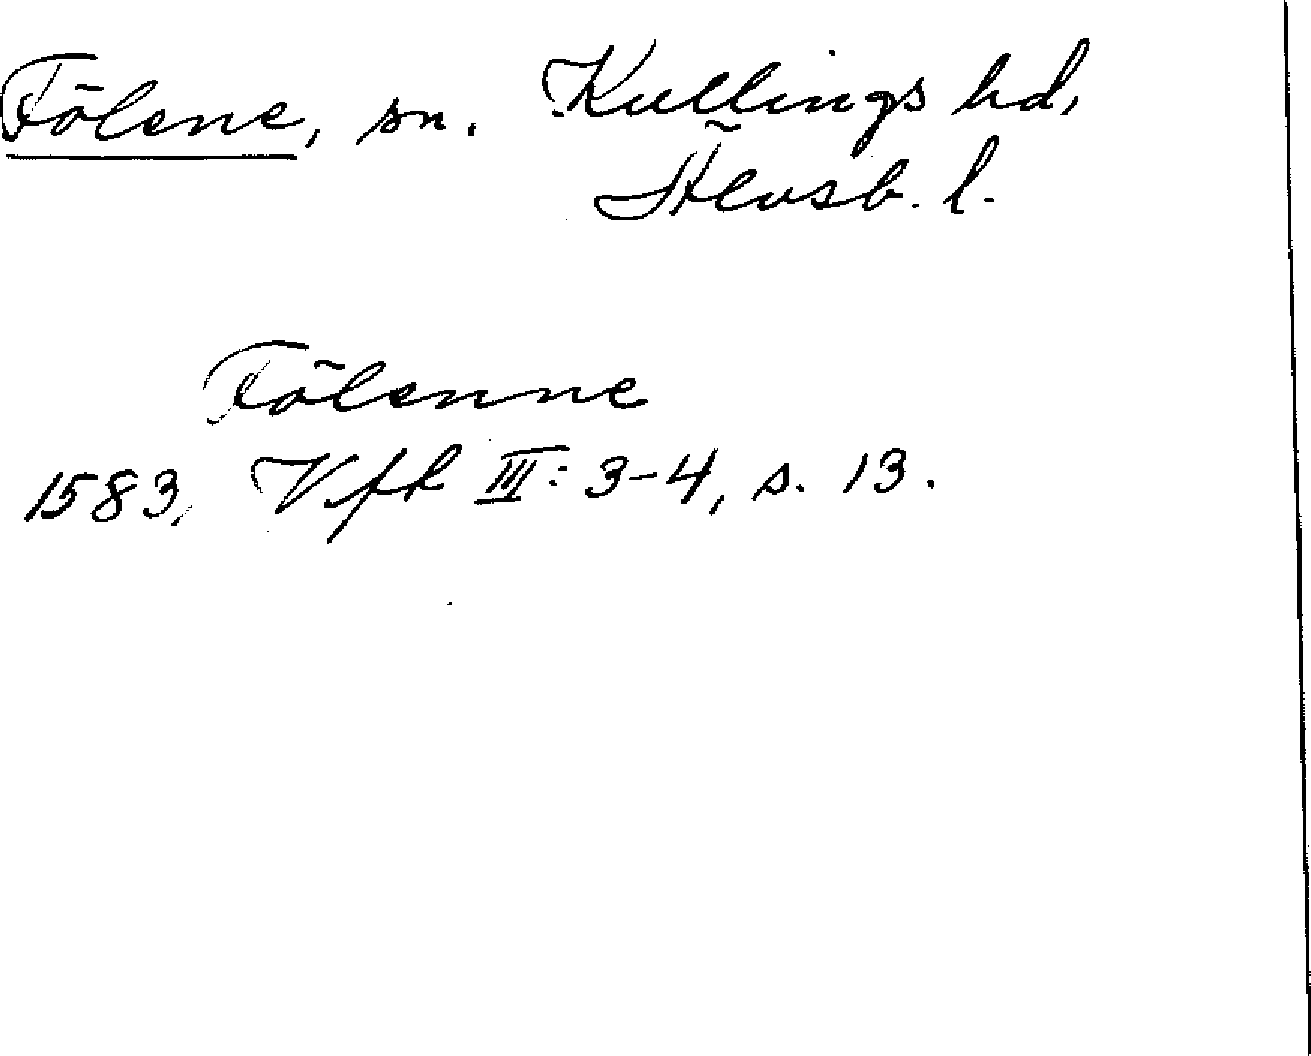 Fölene, sn. Kullings hd,
Älvsb. l.
Fölenne
1583, Vfk III: 3-4, s. 13.